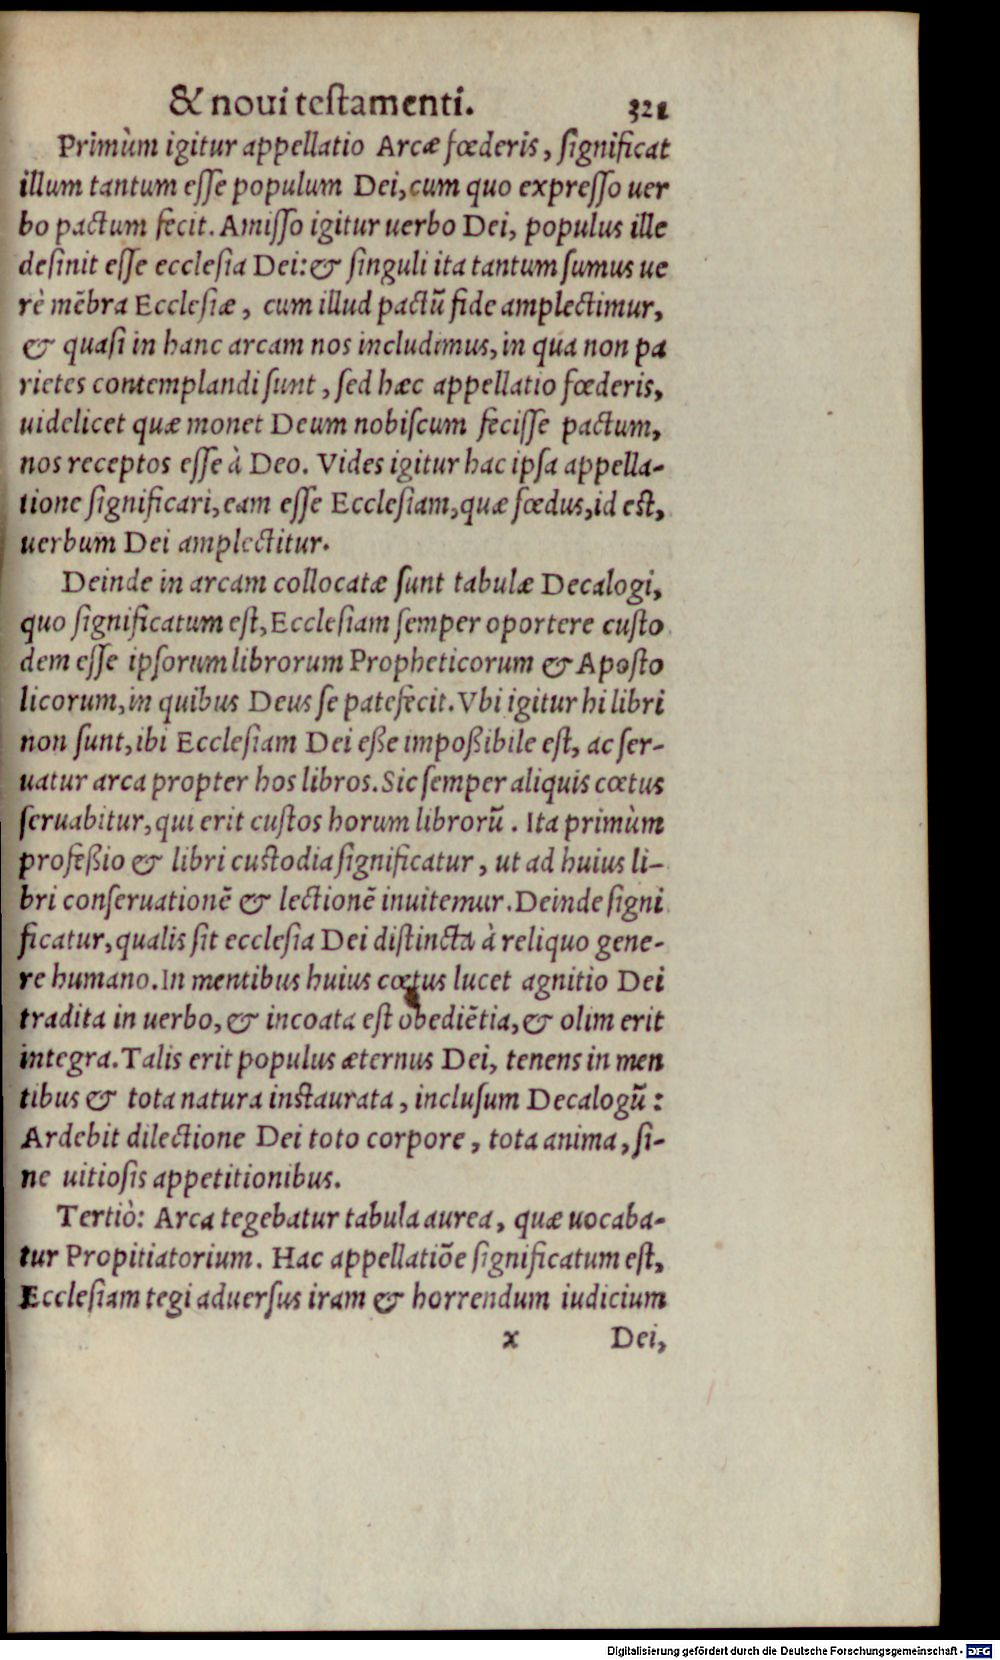 & noui teſtamenti. 321
Primùm igitur appellatio Arcæ fœderis, ſignificat
illum tantum eſſe populum Dei, cum quo expreſſo uer
bo pactum fecit. Amiſſo igitur uerbo Dei, populus ille
deſinit eſſe eccleſia Dei: & ſinguli ita tantum ſumus ue
rè mẽbra Eccleſiæ, cum illud pactũ fide amplectimur,
& quaſi in hanc arcam nos includimus, in qua non pa
rietes contemplandi ſunt, ſed hæc appellatio fœderis,
uidelicet quæ monet Deum nobiſcum feciſſe pactum,
nos receptos eſſe à Deo. Vides igitur hac ipſa appella-
tione ſignificari, eam eſſe Eccleſiam, quæ fœdus, id eſt,
uerbum Dei amplectitur.
Deinde in arcam collocatæ ſunt tabulæ Decalogi,
quo ſignificatum eſt, Eccleſiam ſemper oportere cuſto
dem eſſe ipſorum librorum Propheticorum & Apoſto
licorum, in quibus Deus ſe patefecit. Vbi igitur hi libri
non ſunt, ibi Eccleſiam Dei eße impoßibile eſt, ac ſer-
uatur arca propter hos libros. Sic ſemper aliquis cœtus
ſeruabitur, qui erit cuſtos horum librorũ. Ita primùm
profeßio & libri cuſtodia ſignificatur, ut ad huius li-
bri conſeruationẽ & lectionẽ inuitemur. Deinde ſigni
ficatur, qualis ſit eccleſia Dei diſtincta à reliquo gene-
re humano. In mentibus huius cœtus lucet agnitio Dei
tradita in uerbo, & incoata eſt obediẽtia, & olim erit
integra. Talis erit populus æternus Dei, tenens in men
tibus & tota natura inſtaurata, incluſum Decalogũ:
Ardebit dilectione Dei toto corpore, tota anima, ſi-
ne uitioſis appetitionibus.
Tertiò: Arca tegebatur tabula aurea, quæ uocaba-
tur Propitiatorium. Hac appellatiõe ſignificatum eſt,
Eccleſiam tegi aduerſus iram & horrendum iudicium
x Dei,
Digitalisierung gefördert durch die Deutsche Forschungsgemeinschaft - DFG